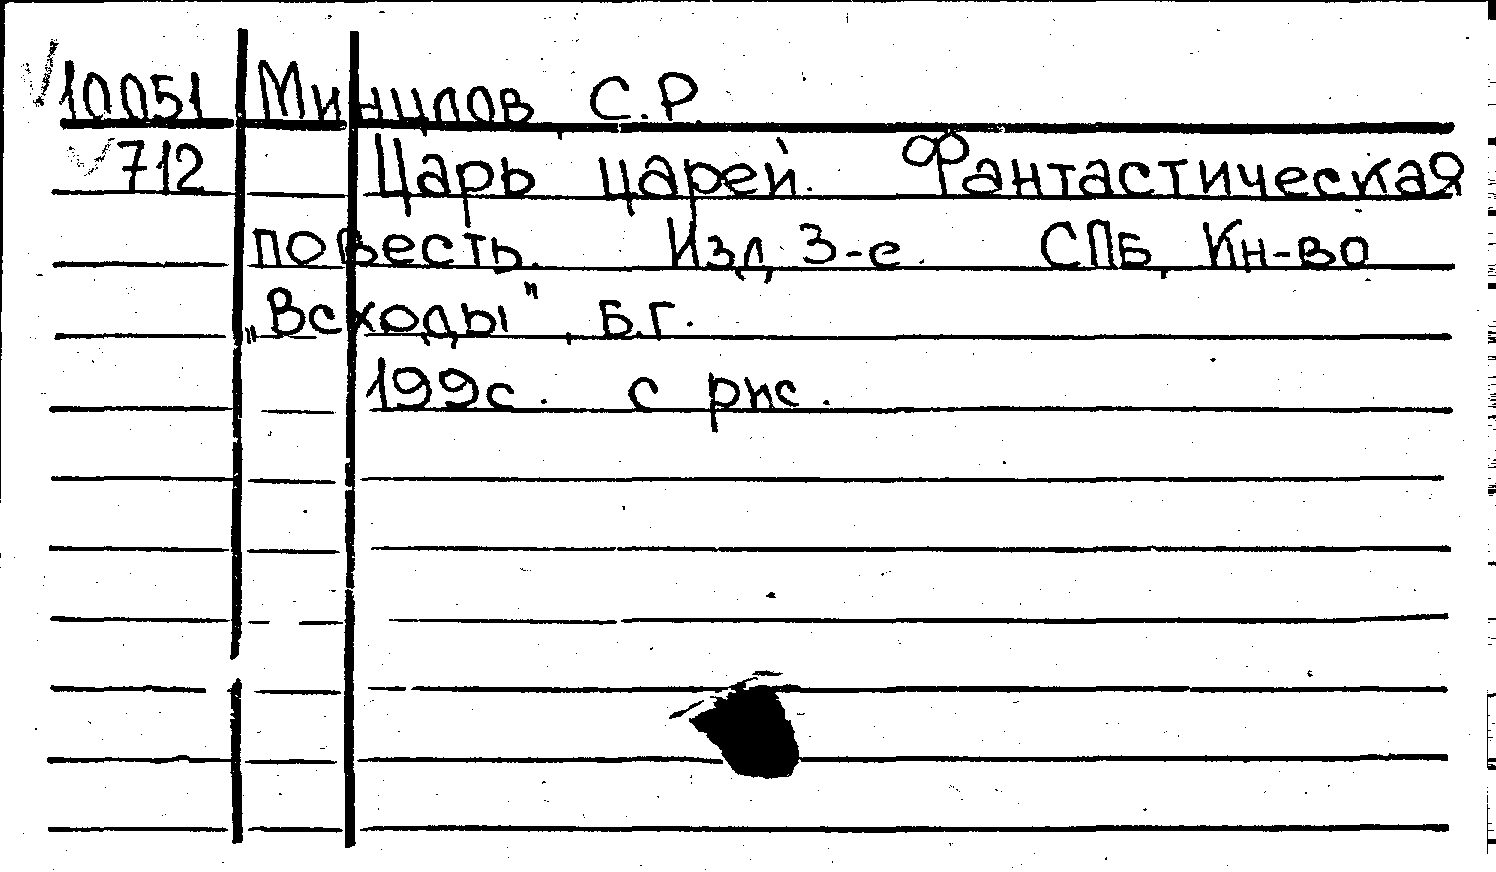 10051 Минцлов С.Р.
712 Царь царей. Фантастическая
повесть. Изд. 3-е. СПБ, Кн-во
„Всходы", Б.Г.
199с. с рис.